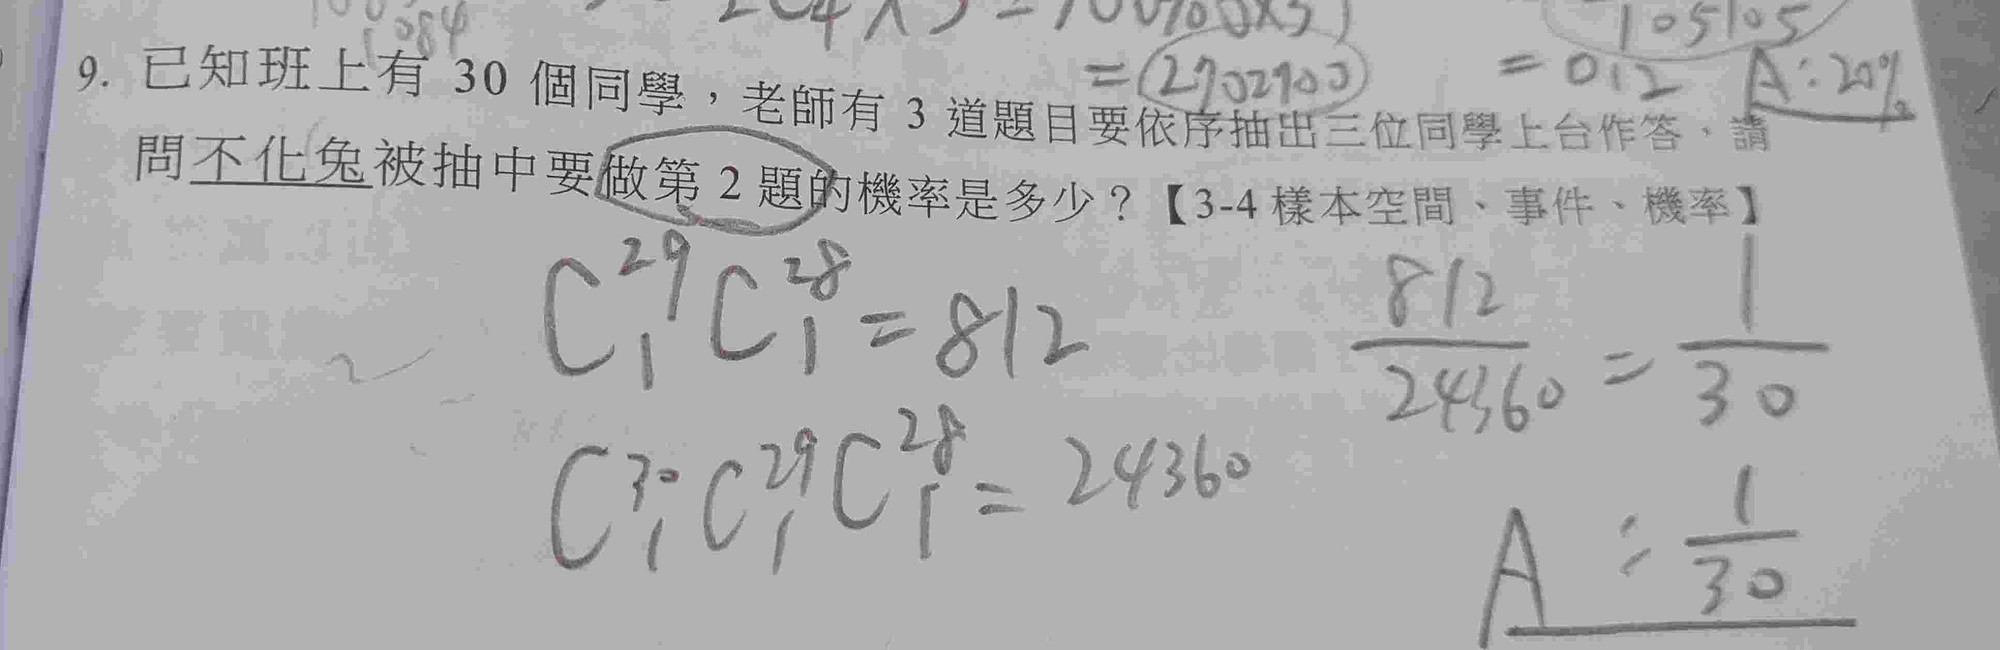 084
=2902900
105105
=0.12 A:20%
9. 已知班上有 30 個同學，老師有 3 道題目要依序抽出三位同學上台作答，請
問不化兔被抽中要做第 2 題的機率是多少？【3-4 樣本空間、事件、機率】
C²⁹₁C²⁸₁=812
812/24360=1/30
C³⁰₁C²⁹₁C²⁸₁=24360
A:1/30